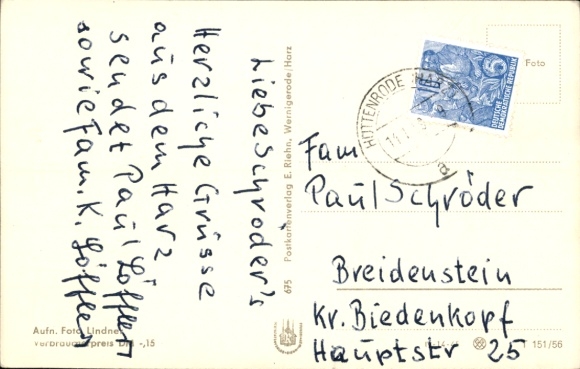 Liebe Schröder's
Herzliche Grüsse
aus dem Harz
sendet Paul Löffler
sowie Fam. K. Löffler
675 Postkartenverlag E. Riehn, Wernigerode/Harz
Aufn. Foto Lindner
Verbraucherpreis DM -,15
Foto
DEUTSCHE
DEMOKRATISCHE REPUBLIK
HÜTTENRODE (HARZ)
a
Fam
Paul Schröder
Breidenstein
Kr. Biedenkopf
Hauptstr 25
T 151/56